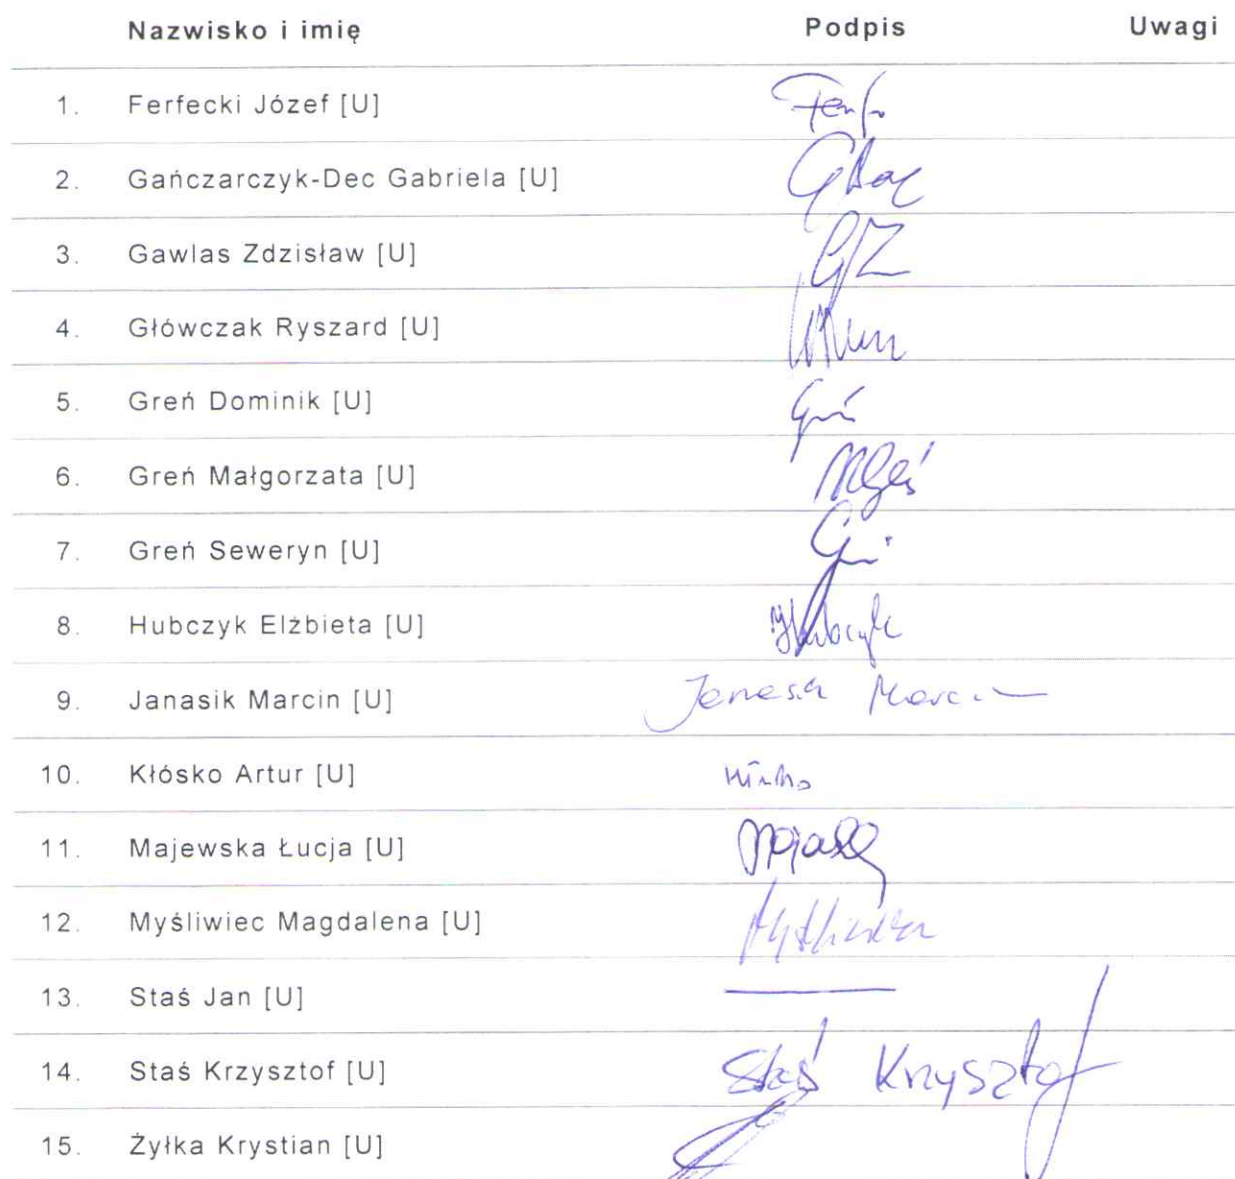 Nazwisko i imię Podpis Uwagi
1. Ferfecki Józef [U]
2. Gańczarczyk-Dec Gabriela [U]
3. Gawlas Zdzisław [U] GZ
4. Główczak Ryszard [U]
5. Greń Dominik [U]
6. Greń Małgorzata [U]
7. Greń Seweryn [U]
8. Hubczyk Elżbieta [U] Hubczyk
9. Janasik Marcin [U]
10. Kłósko Artur [U]
11. Majewska Łucja [U]
12. Myśliwiec Magdalena [U]
13. Staś Jan [U]
14. Staś Krzysztof [U] Staś Krzysztof
15. Żyłka Krystian [U]